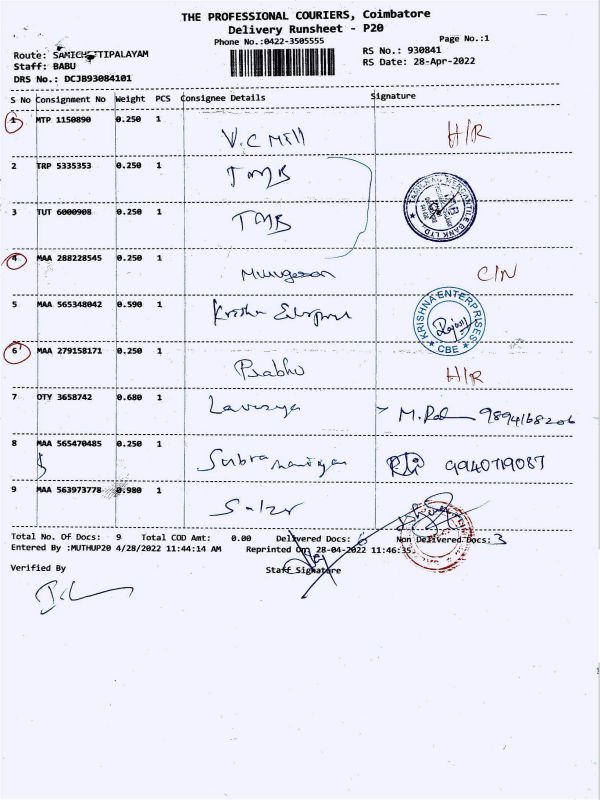 THE PROFESSIONAL COURIERS, Coimbatore
Delivery Runsheet - P20
Phone No.:0422-3505555
Page No.:1
Route: SAMICHETTIPALAYAM
RS No.: 930841
Staff: BABU
RS Date: 28-Apr-2022
DRS No.: DCJB93084101
S No Consignment No Weight PCS Consignee Details Signature
1 MTP 1150890 0.250 1
V.C Mill H/R
2 TRP 5335353 0.250 1
TMB
TAMILNAD MERCANTILE BANK LTD
3 TUT 6000908 0.250 1
TMB
4 MAA 288228545 0.250 1
Murugesan C/N
5 MAA 565348042 0.590 1
Krishna
KRISHNA ENTERPRISES
CBE
6 MAA 279158171 0.250 1
Prabhu H/R
7 OTY 3658742 0.680 1
Lavanya 9894168206
8 MAA 565470485 0.250 1
9940719087
9 MAA 563973778 0.980 1
Salzr
Total No. Of Docs: 9 Total COD Amt: 0.00 Delivered Docs: 6 Non Delivered Docs: 3
Entered By :MUTHUP20 4/28/2022 11:44:14 AM Reprinted On 28-04-2022 11:46:35
Verified By Staff Signature